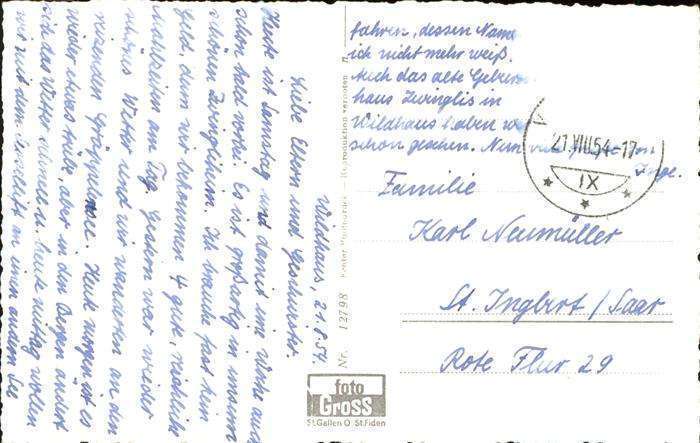 Wildhaus, 21.8.54.
Liebe Eltern und Geschwister.
Heute ist Samstag und damit eine Woche auch
schon bald vorbei. Es ist großartig in unserm
schönen Zwingliheim. Ich brauche fast kein
Geld, denn wir bekommen 4 gute, reichliche
Mahlzeiten am Tag. Gestern war wieder
schönes Wetter und wir wanderten an den
reizenden Gräppelensee. Heute morgen ist es
wieder etwas trübe, aber in den Bergen ändert
sich das Wetter schnell u. heute mittag wollen
wir mit dem Sessellift in einen andern See
fahren, dessen Name
ich nicht mehr weiß.
Auch das alte Geburts
haus Zwinglis in
Wildhaus haben wir
schon gesehen. Nun
Inge.
Familie
Karl Neumüller
St. Ingbert / Saar
Rote Flur 29
21.VIII.54-17
IX
Nr. 12798
Reproduktion verboten
foto
GROSS
St.Gallen O St.Fiden